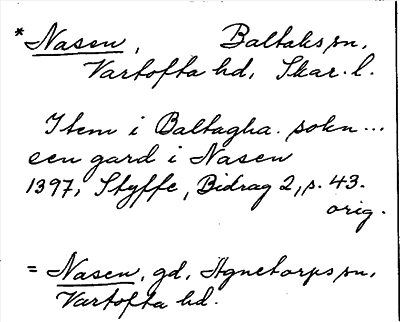 *Nasen, Baltaks sn,
Vartofta hd, Skar. l.
Item i Baltagha. sokn...
een gard i Nasen
1397, Styffe, Bidrag 2, s. 43.
orig.
= Nasen, gd, Agnetorps sn,
Vartofta hd.